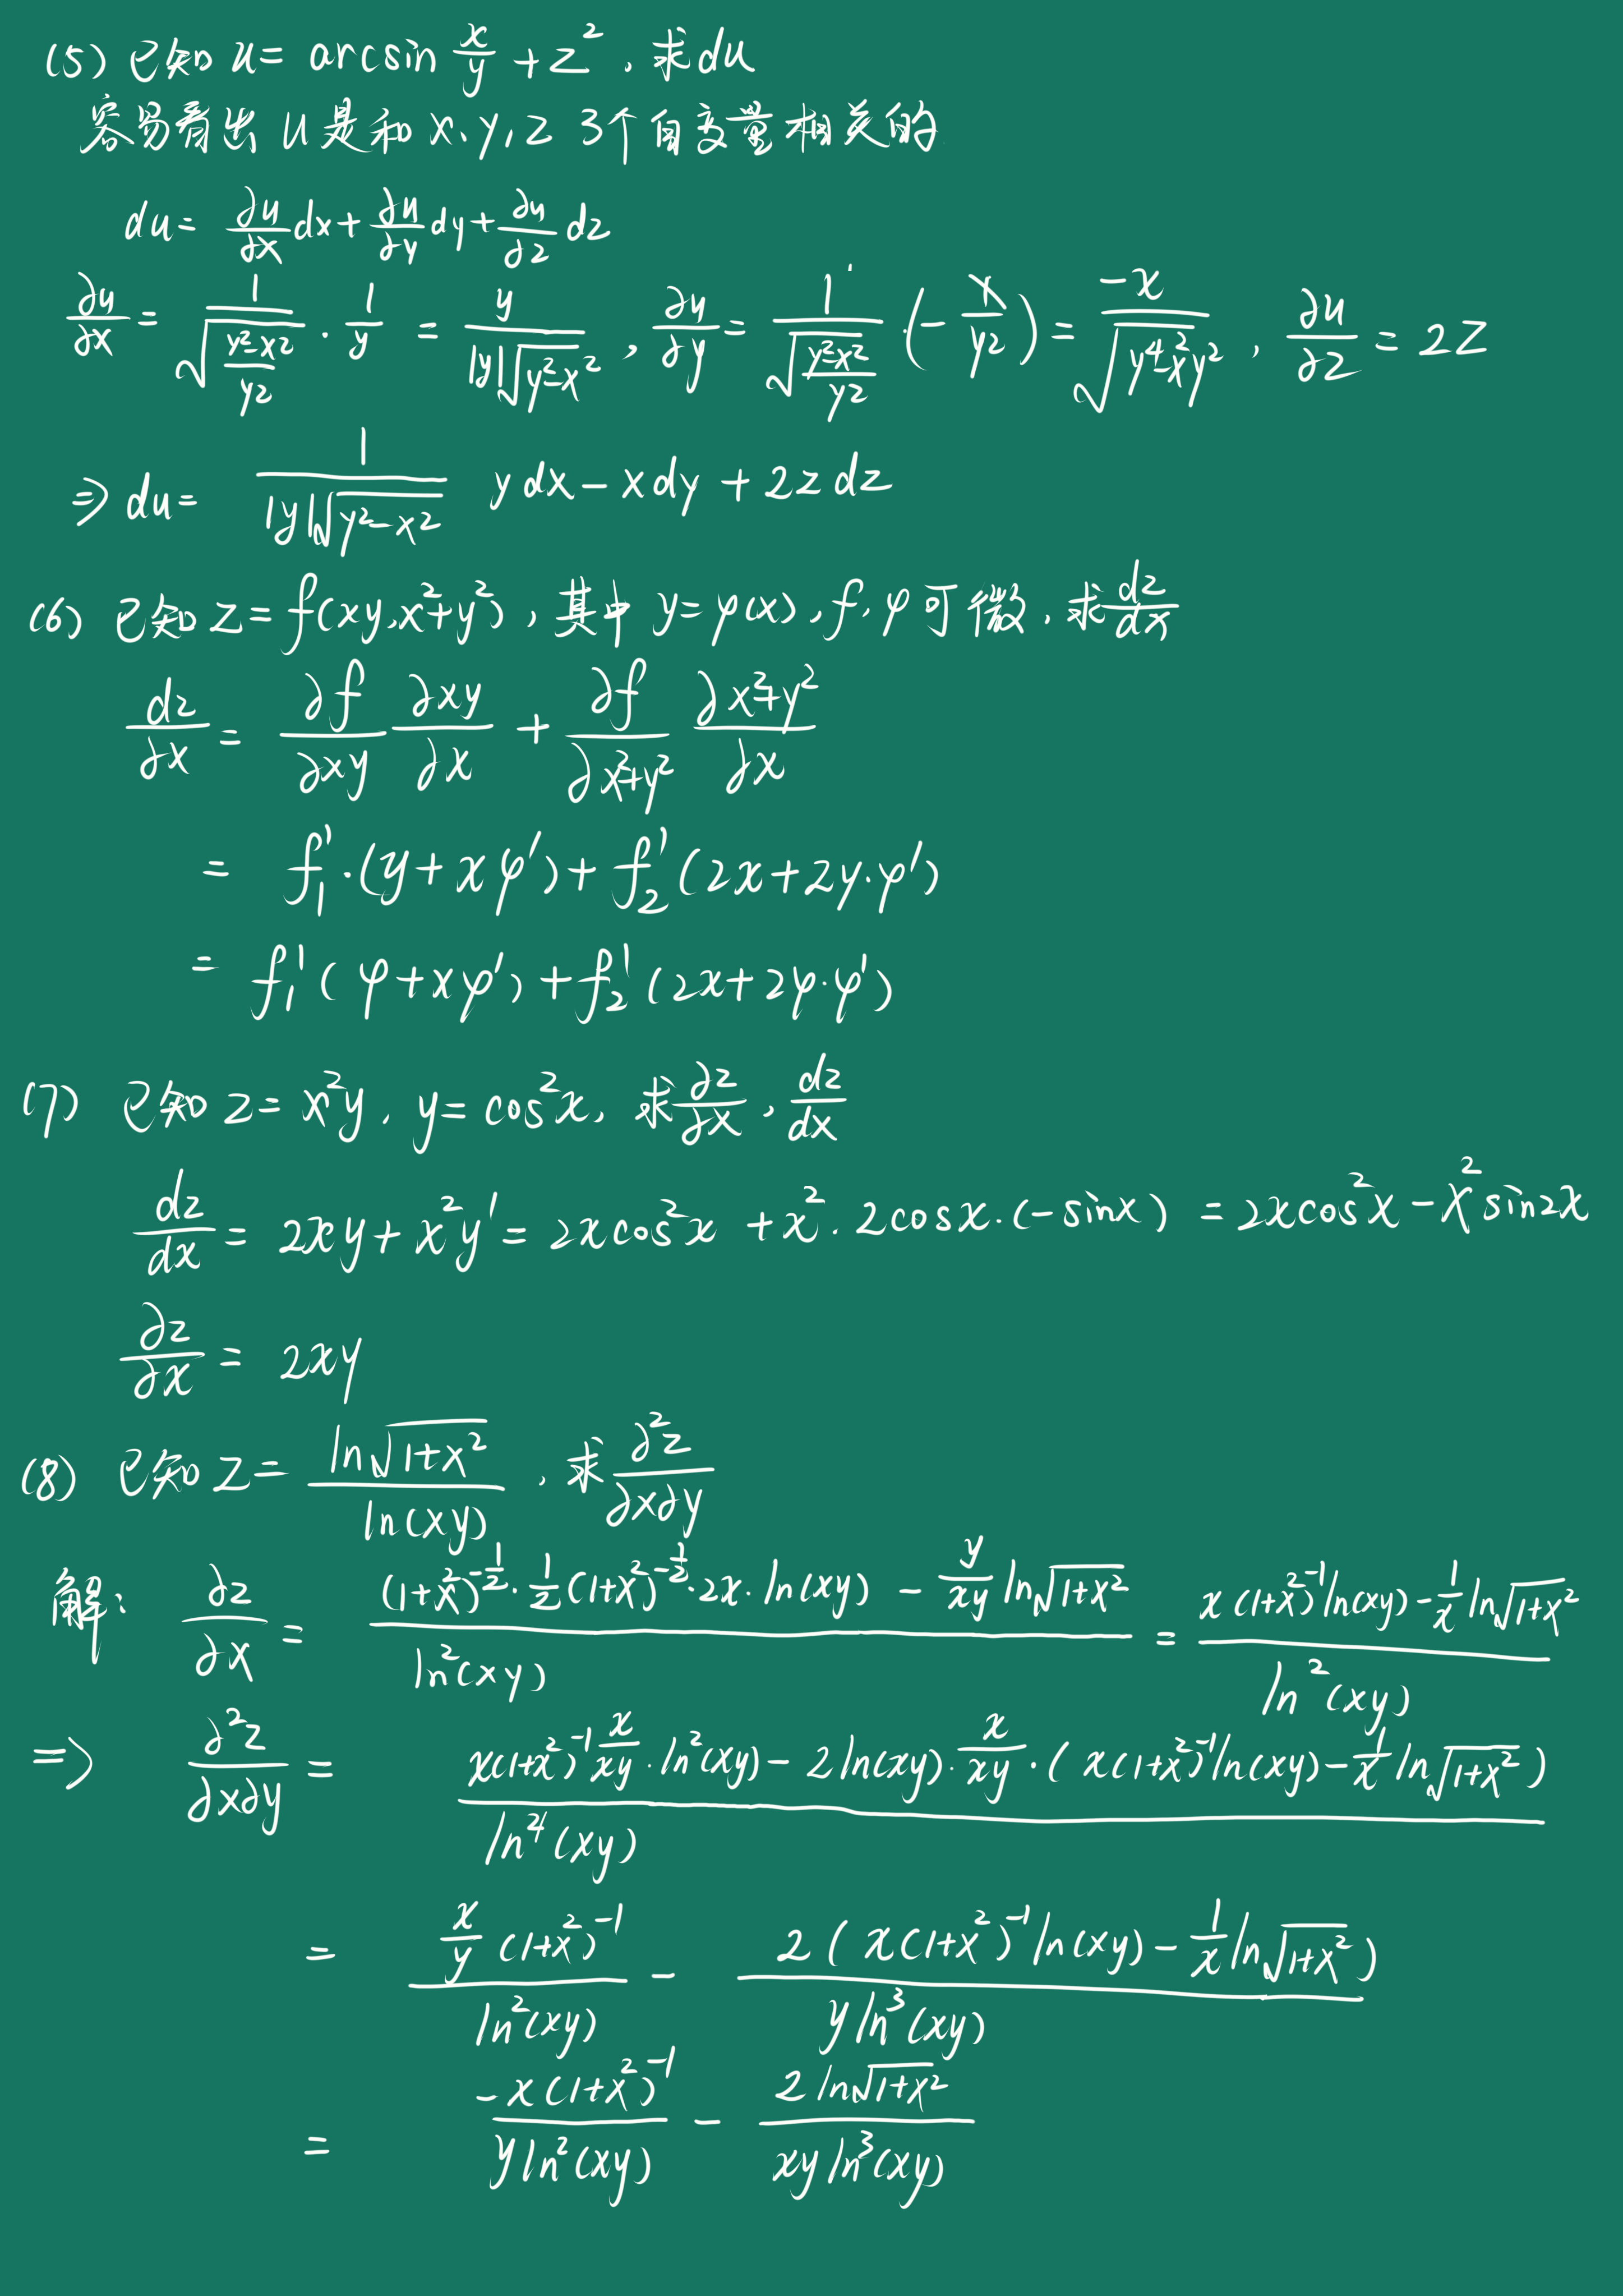 (5) 已知 u = arcsin x/y + z², 求du
容易看出 u 是和 x、y, z 3个自变量相关的
du = ∂u/∂x dx + ∂u/∂y dy + ∂u/∂z dz
∂u/∂x = 1/√((y²-x²)/y²) · 1/y = y/(|y|√(y²-x²)), ∂u/∂y = 1/√((y²-x²)/y²) · (-x/y²) = -x/√(y⁴-x²y²), ∂u/∂z = 2z
⇒ du = 1/(|y|√(y²-x²)) ydx - xdy + 2zdz
(6) 已知 z = f(xy, x²+y²), 其中 y = φ(x), f, φ 可微, 求 dz/dx
dz/∂x = ∂f/∂xy ∂xy/∂x + ∂f/∂x²+y² ∂x²+y²/∂x
= f₁'·(y+xφ') + f₂'(2x+2y·φ')
= f₁'(φ+xφ') + f₂'(2x+2φ·φ')
(7) 已知 z = x²y, y = cos²x, 求 ∂z/∂x, dz/dx
dz/dx = 2xy + x²y' = 2xcos²x + x²·2cosx·(-sinx) = 2xcos²x - x²sin2x
∂z/∂x = 2xy
(8) 已知 z = ln√(1+x²)/ln(xy), 求 ∂²z/∂x∂y
解: ∂z/∂x = ((1+x²)^(-1/2)·1/2(1+x²)^(-1/2)·2x·ln(xy) - y/xy ln√(1+x²))/ln²(xy) = (x(1+x²)⁻¹ln(xy) - 1/x ln√(1+x²))/ln²(xy)
⇒ ∂²z/∂x∂y = (x(1+x²)⁻¹ x/xy · ln²(xy) - 2ln(xy)·x/xy·(x(1+x²)⁻¹ln(xy) - 1/x ln√(1+x²)))/ln⁴(xy)
= (x/y (1+x²)⁻¹)/ln²(xy) - 2(x(1+x²)⁻¹ln(xy) - 1/x ln√(1+x²))/(y ln³(xy))
= -x(1+x²)⁻¹/(y ln²(xy)) - 2ln√(1+x²)/(xy ln³(xy))